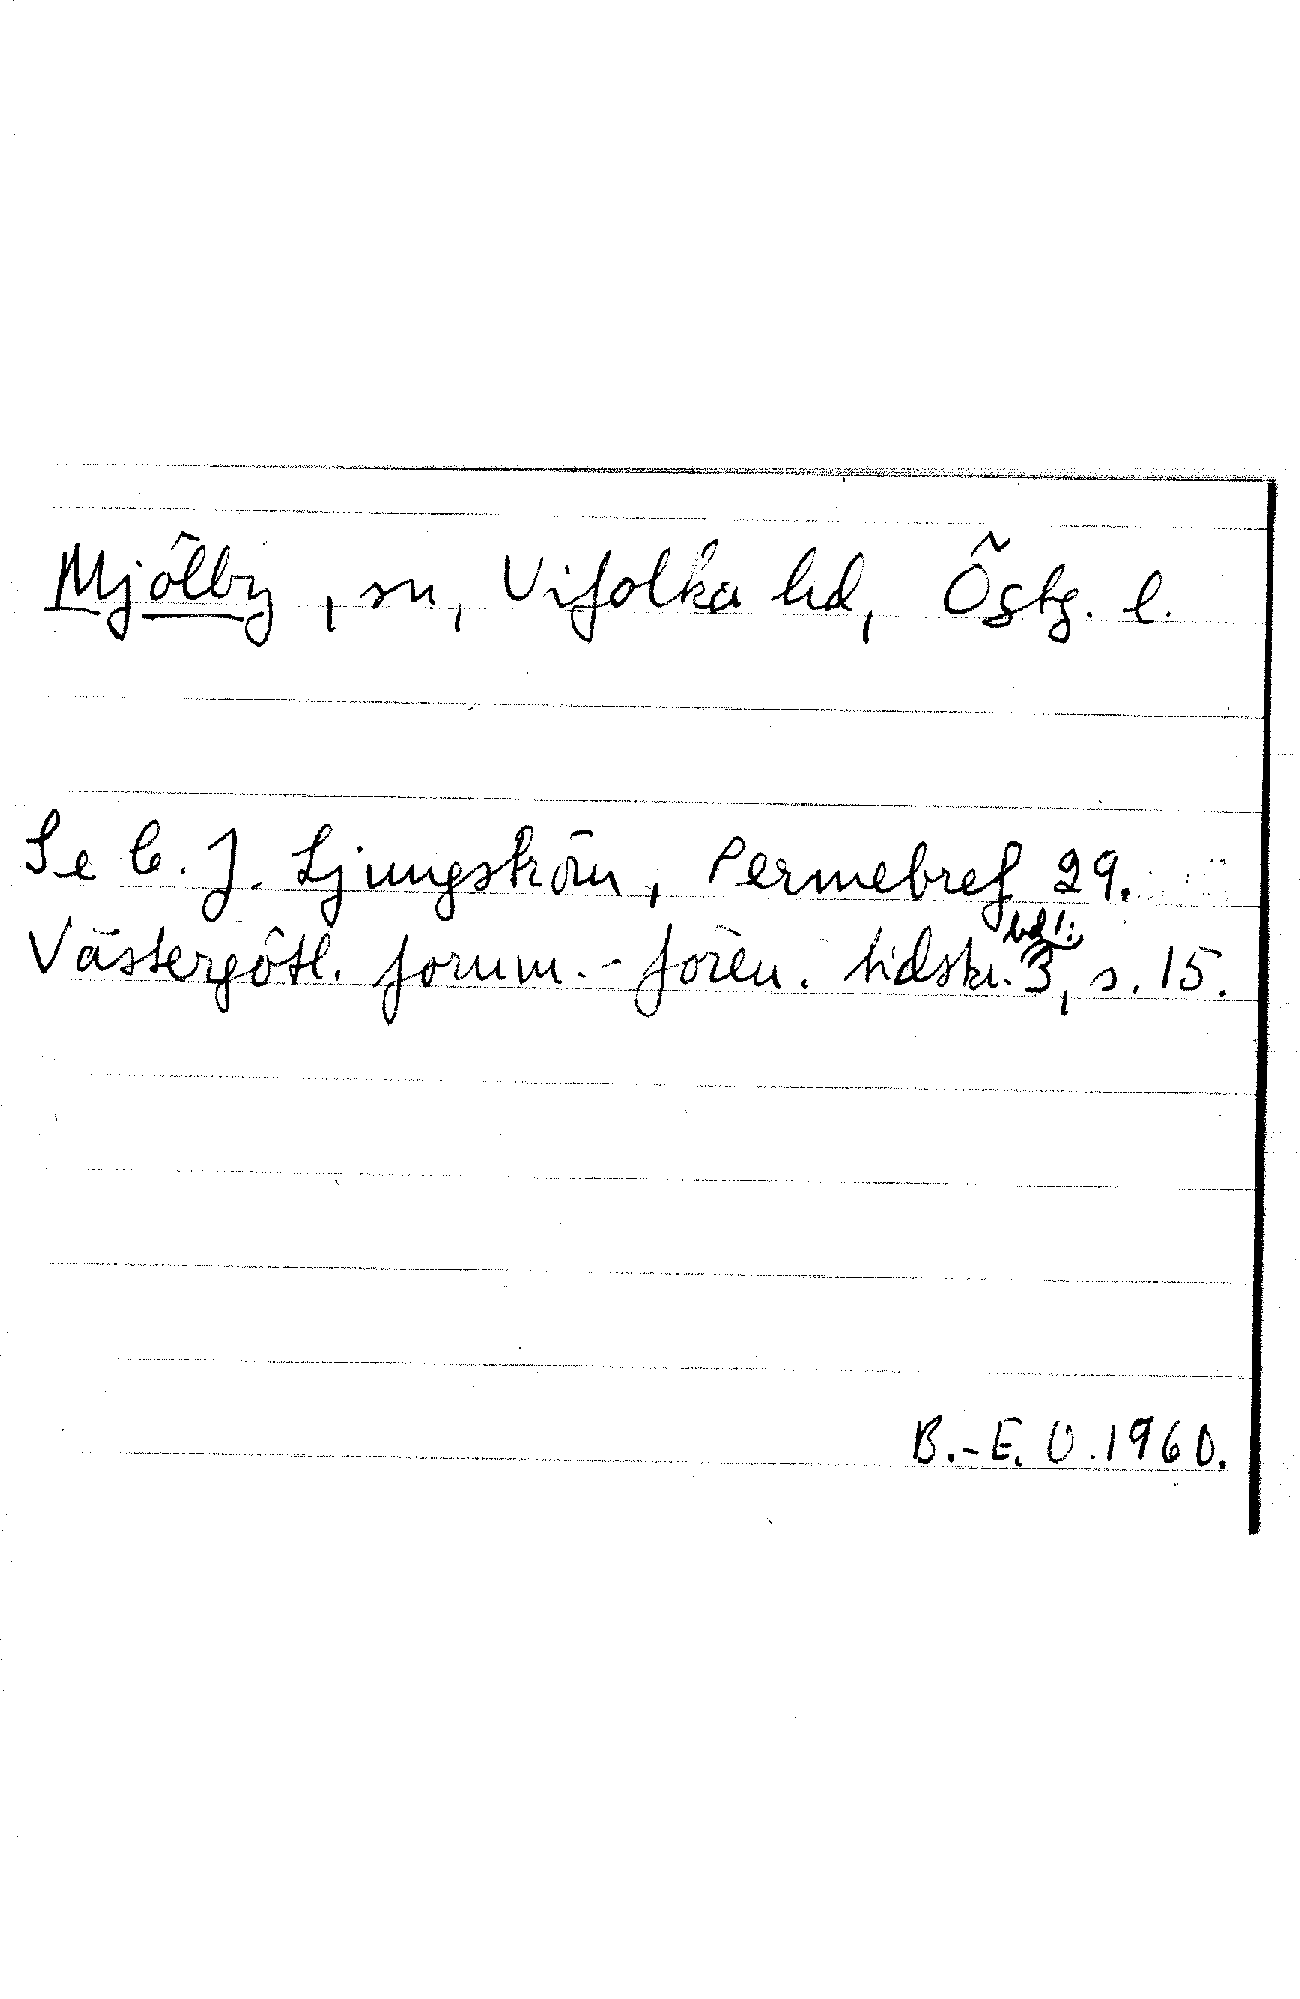 Mjölby, sn, Vifolka hd, Östg. l.
Se C. J. Ljungström, Permebref 29.
Västergötl. fornm.-fören. tidskr. bd 1: 3, s. 15.
B.-E. O. 1960.